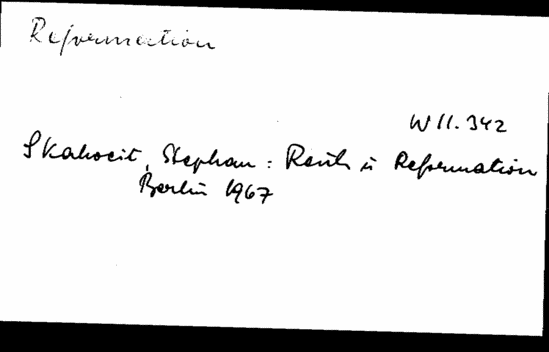 Reformation
W II. 342
Skalweit, Stephan: Reich u Reformation
Berlin 1967